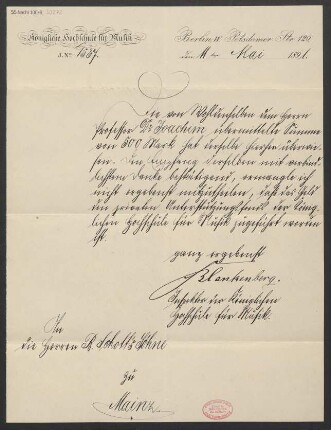 Königliche Hochschule für Musik
J. No. 1637.
Berlin W. Potsdamer Str. 120
den 11ten Mai 1891.
Die von Wohldenselben dem Herrn
Professor Dr. Joachim übermittelte Summe
von 300 Mark hat derselbe hierher überwie-
sen. Den Empfang derselben mit verbind-
lichstem Danke bestätigend, ermangle ich
nicht ergebenst mitzutheilen, daß das Geld
dem privaten Unterstützungsfonds der König-
lichen Hochschule für Musik zugeführt worden
ist.
ganz ergebenst
Klantenberg.
Inspektor der Königlichen
Hochschule für Musik.
An
die Herren B. Schott's Söhne
zu
Mainz